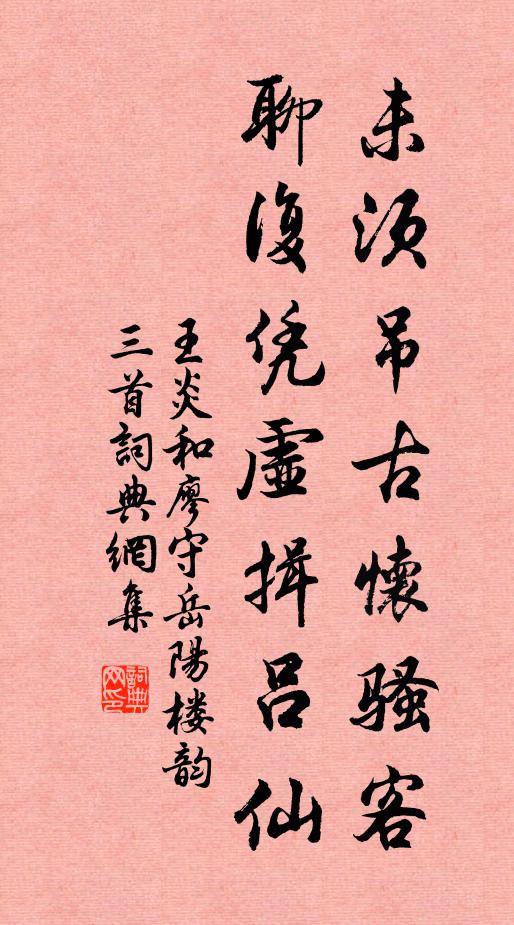 未须吊古懷騷客
聊復凭虛揖吕仙
王炎和廖守岳陽楼韵
三首詞典網集
詞典
网印